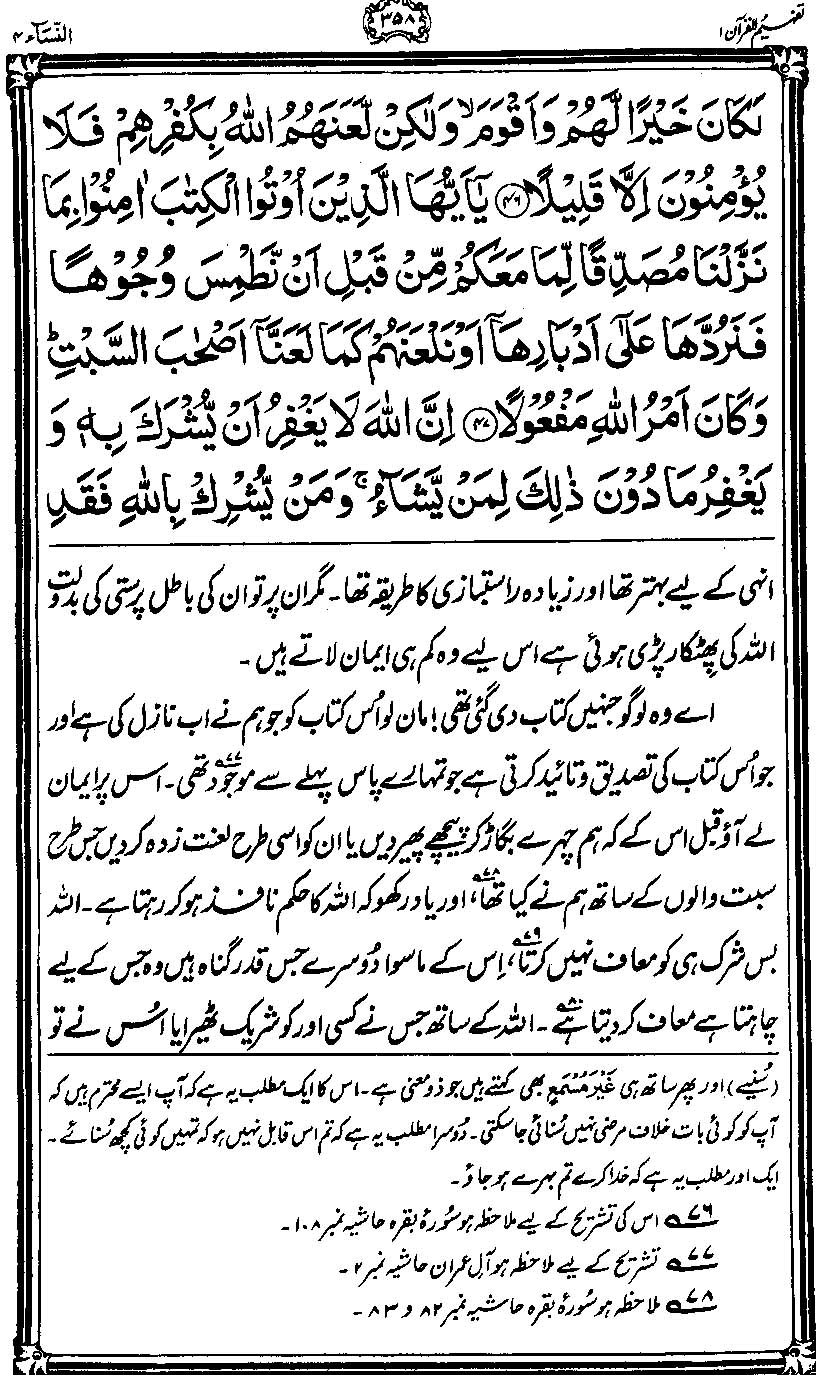 تفہیم القرآن ۱
۳۵۸
النسآء ۴
لَكَانَ خَيْرًا لَّهُمْ وَاَقْوَمَ ۙ وَلٰكِنْ لَّعَنَهُمُ اللّٰهُ بِكُفْرِهِمْ فَلَا
يُؤْمِنُوْنَ اِلَّا قَلِيْلًا ﴿۴۶﴾ يٰۤاَيُّهَا الَّذِيْنَ اُوْتُوا الْكِتٰبَ اٰمِنُوْا بِمَا
نَزَّلْنَا مُصَدِّقًا لِّمَا مَعَكُمْ مِّنْ قَبْلِ اَنْ نَّطْمِسَ وُجُوْهًا
فَنَرُدَّهَا عَلٰۤى اَدْبَارِهَاۤ اَوْ نَلْعَنَهُمْ كَمَا لَعَنَّاۤ اَصْحٰبَ السَّبْتِ ؕ
وَكَانَ اَمْرُ اللّٰهِ مَفْعُوْلًا ﴿۴۷﴾ اِنَّ اللّٰهَ لَا يَغْفِرُ اَنْ يُّشْرَكَ بِهٖ وَ
يَغْفِرُ مَا دُوْنَ ذٰلِكَ لِمَنْ يَّشَآءُ ۚ وَمَنْ يُّشْرِكْ بِاللّٰهِ فَقَدِ
انہی کے لیے بہتر تھا اور زیادہ راستبازی کا طریقہ تھا۔ مگر ان پر تو ان کی باطل پرستی کی بدولت
اللہ کی پھٹکار پڑی ہوئی ہے اس لیے وہ کم ہی ایمان لاتے ہیں۔
اے وہ لوگو جنہیں کتاب دی گئی تھی! مان لو اُس کتاب کو جو ہم نے اب نازل کی ہے اور
جو اُس کتاب کی تصدیق و تائید کرتی ہے جو تمہارے پاس پہلے سے موجود ۷۷ تھی۔ اس پر ایمان
لے آؤ قبل اس کے کہ ہم چہرے بگاڑ کر پیچھے پھیر دیں یا ان کو اسی طرح لعنت زدہ کر دیں جس طرح
سبت والوں کے ساتھ ہم نے کیا تھا ۷۸، اور یاد رکھو کہ اللہ کا حکم نافذ ہو کر رہتا ہے۔ اللہ
بس شرک ہی کو معاف نہیں کرتا ۷۹، اِس کے ماسوا دُوسرے جس قدر گناہ ہیں وہ جس کے لیے
چاہتا ہے معاف کر دیتا ہے ۸۰۔ اللہ کے ساتھ جس نے کسی اور کو شریک ٹھیرایا اُس نے تو
(سُنیے) اور پھر ساتھ ہی غَيْرَ مُسْمَعٍ بھی کہتے ہیں جو ذو معنی ہے۔ اس کا ایک مطلب یہ ہے کہ آپ ایسے محترم ہیں کہ
آپ کو کوئی بات خلاف مرضی نہیں سُنائی جا سکتی۔ دُوسرا مطلب یہ ہے کہ تم اس قابل نہیں ہو کہ تمہیں کوئی کچھ سُنائے۔
ایک اور مطلب یہ ہے کہ خدا کرے تم بہرے ہو جاؤ۔
۷۶ اس کی تشریح کے لیے ملاحظہ ہو سُورۂ بقرہ حاشیہ نمبر ۱۰۸۔
۷۷ تشریح کے لیے ملاحظہ ہو آل عمران حاشیہ نمبر ۲۔
۷۸ ملاحظہ ہو سُورۂ بقرہ حاشیہ نمبر ۸۲ و ۸۳۔